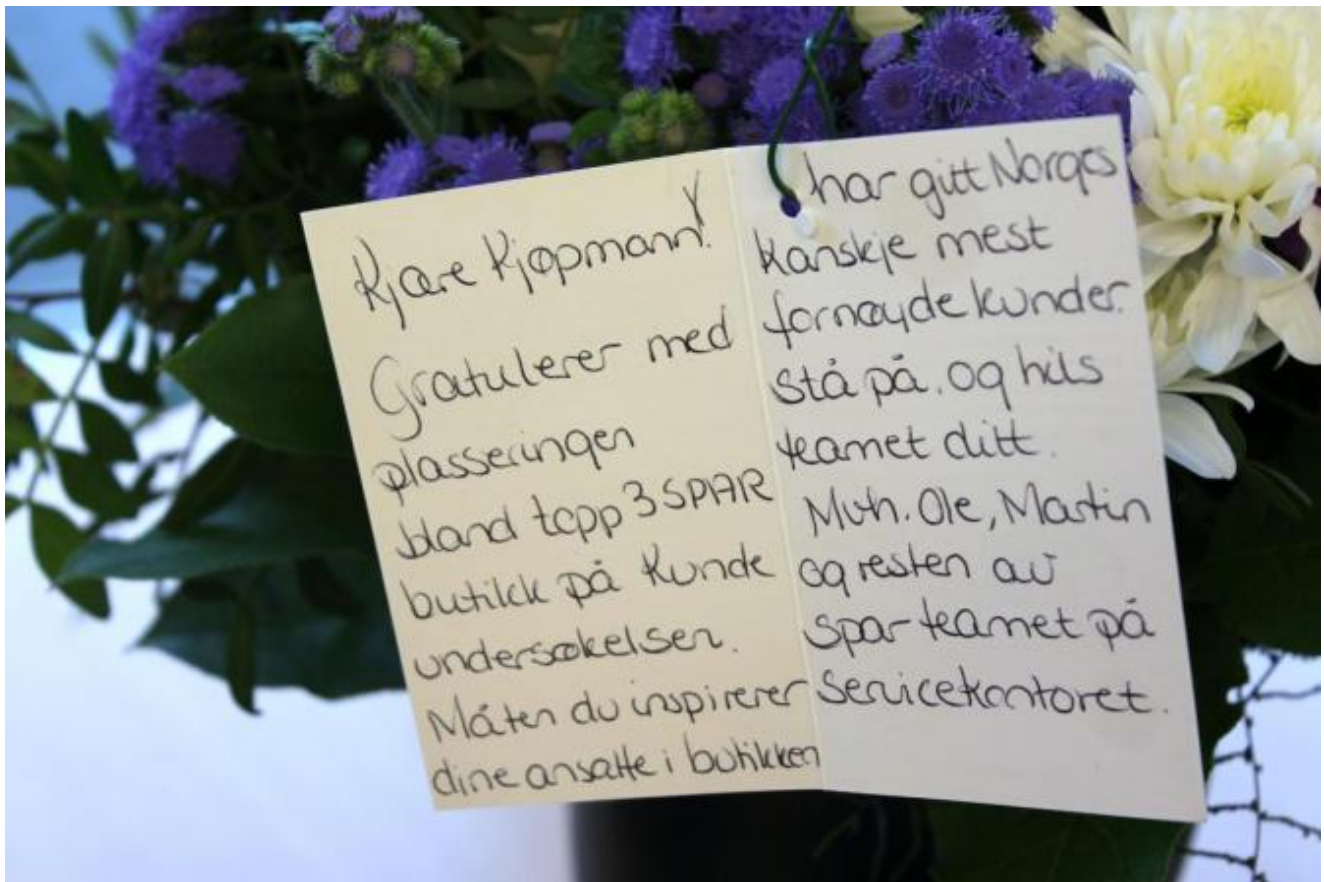 Kjære Kjøpmann!
Gratulerer med
plasseringen
bland topp 3 SPAR
butikk på Kunde
undersøkelsen.
Måten du inspirerer
dine ansatte i butikken
har gitt Norges
kanskje mest
fornøyde kunder.
stå på. og hils
teamet ditt.
Mvh. Ole, Martin
og resten av
spar-teamet på
servicekontoret.